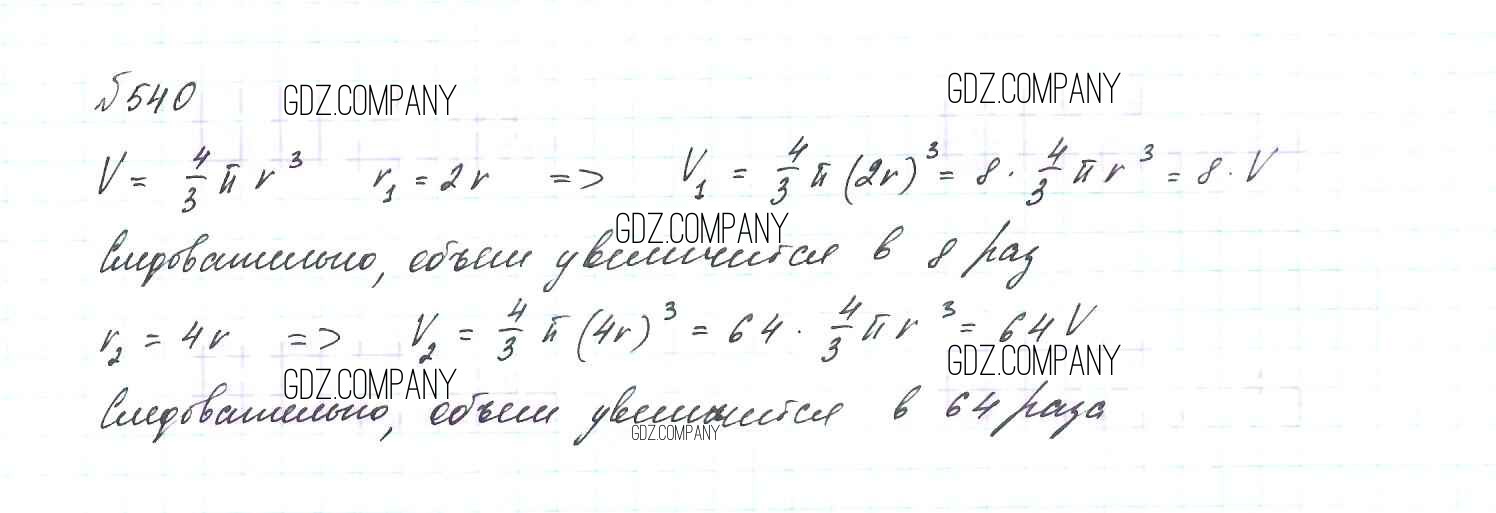 №540 GDZ.COMPANY GDZ.COMPANY
V = 4/3 π r³ r₁ = 2r => V₁ = 4/3 π (2r)³ = 8 · 4/3 π r³ = 8 · V
GDZ.COMPANY
Следовательно, объем увеличится в 8 раз
r₂ = 4r => V₂ = 4/3 π (4r)³ = 64 · 4/3 π r³ = 64 V
GDZ.COMPANY GDZ.COMPANY
Следовательно, объем увеличится в 64 раза
GDZ.COMPANY